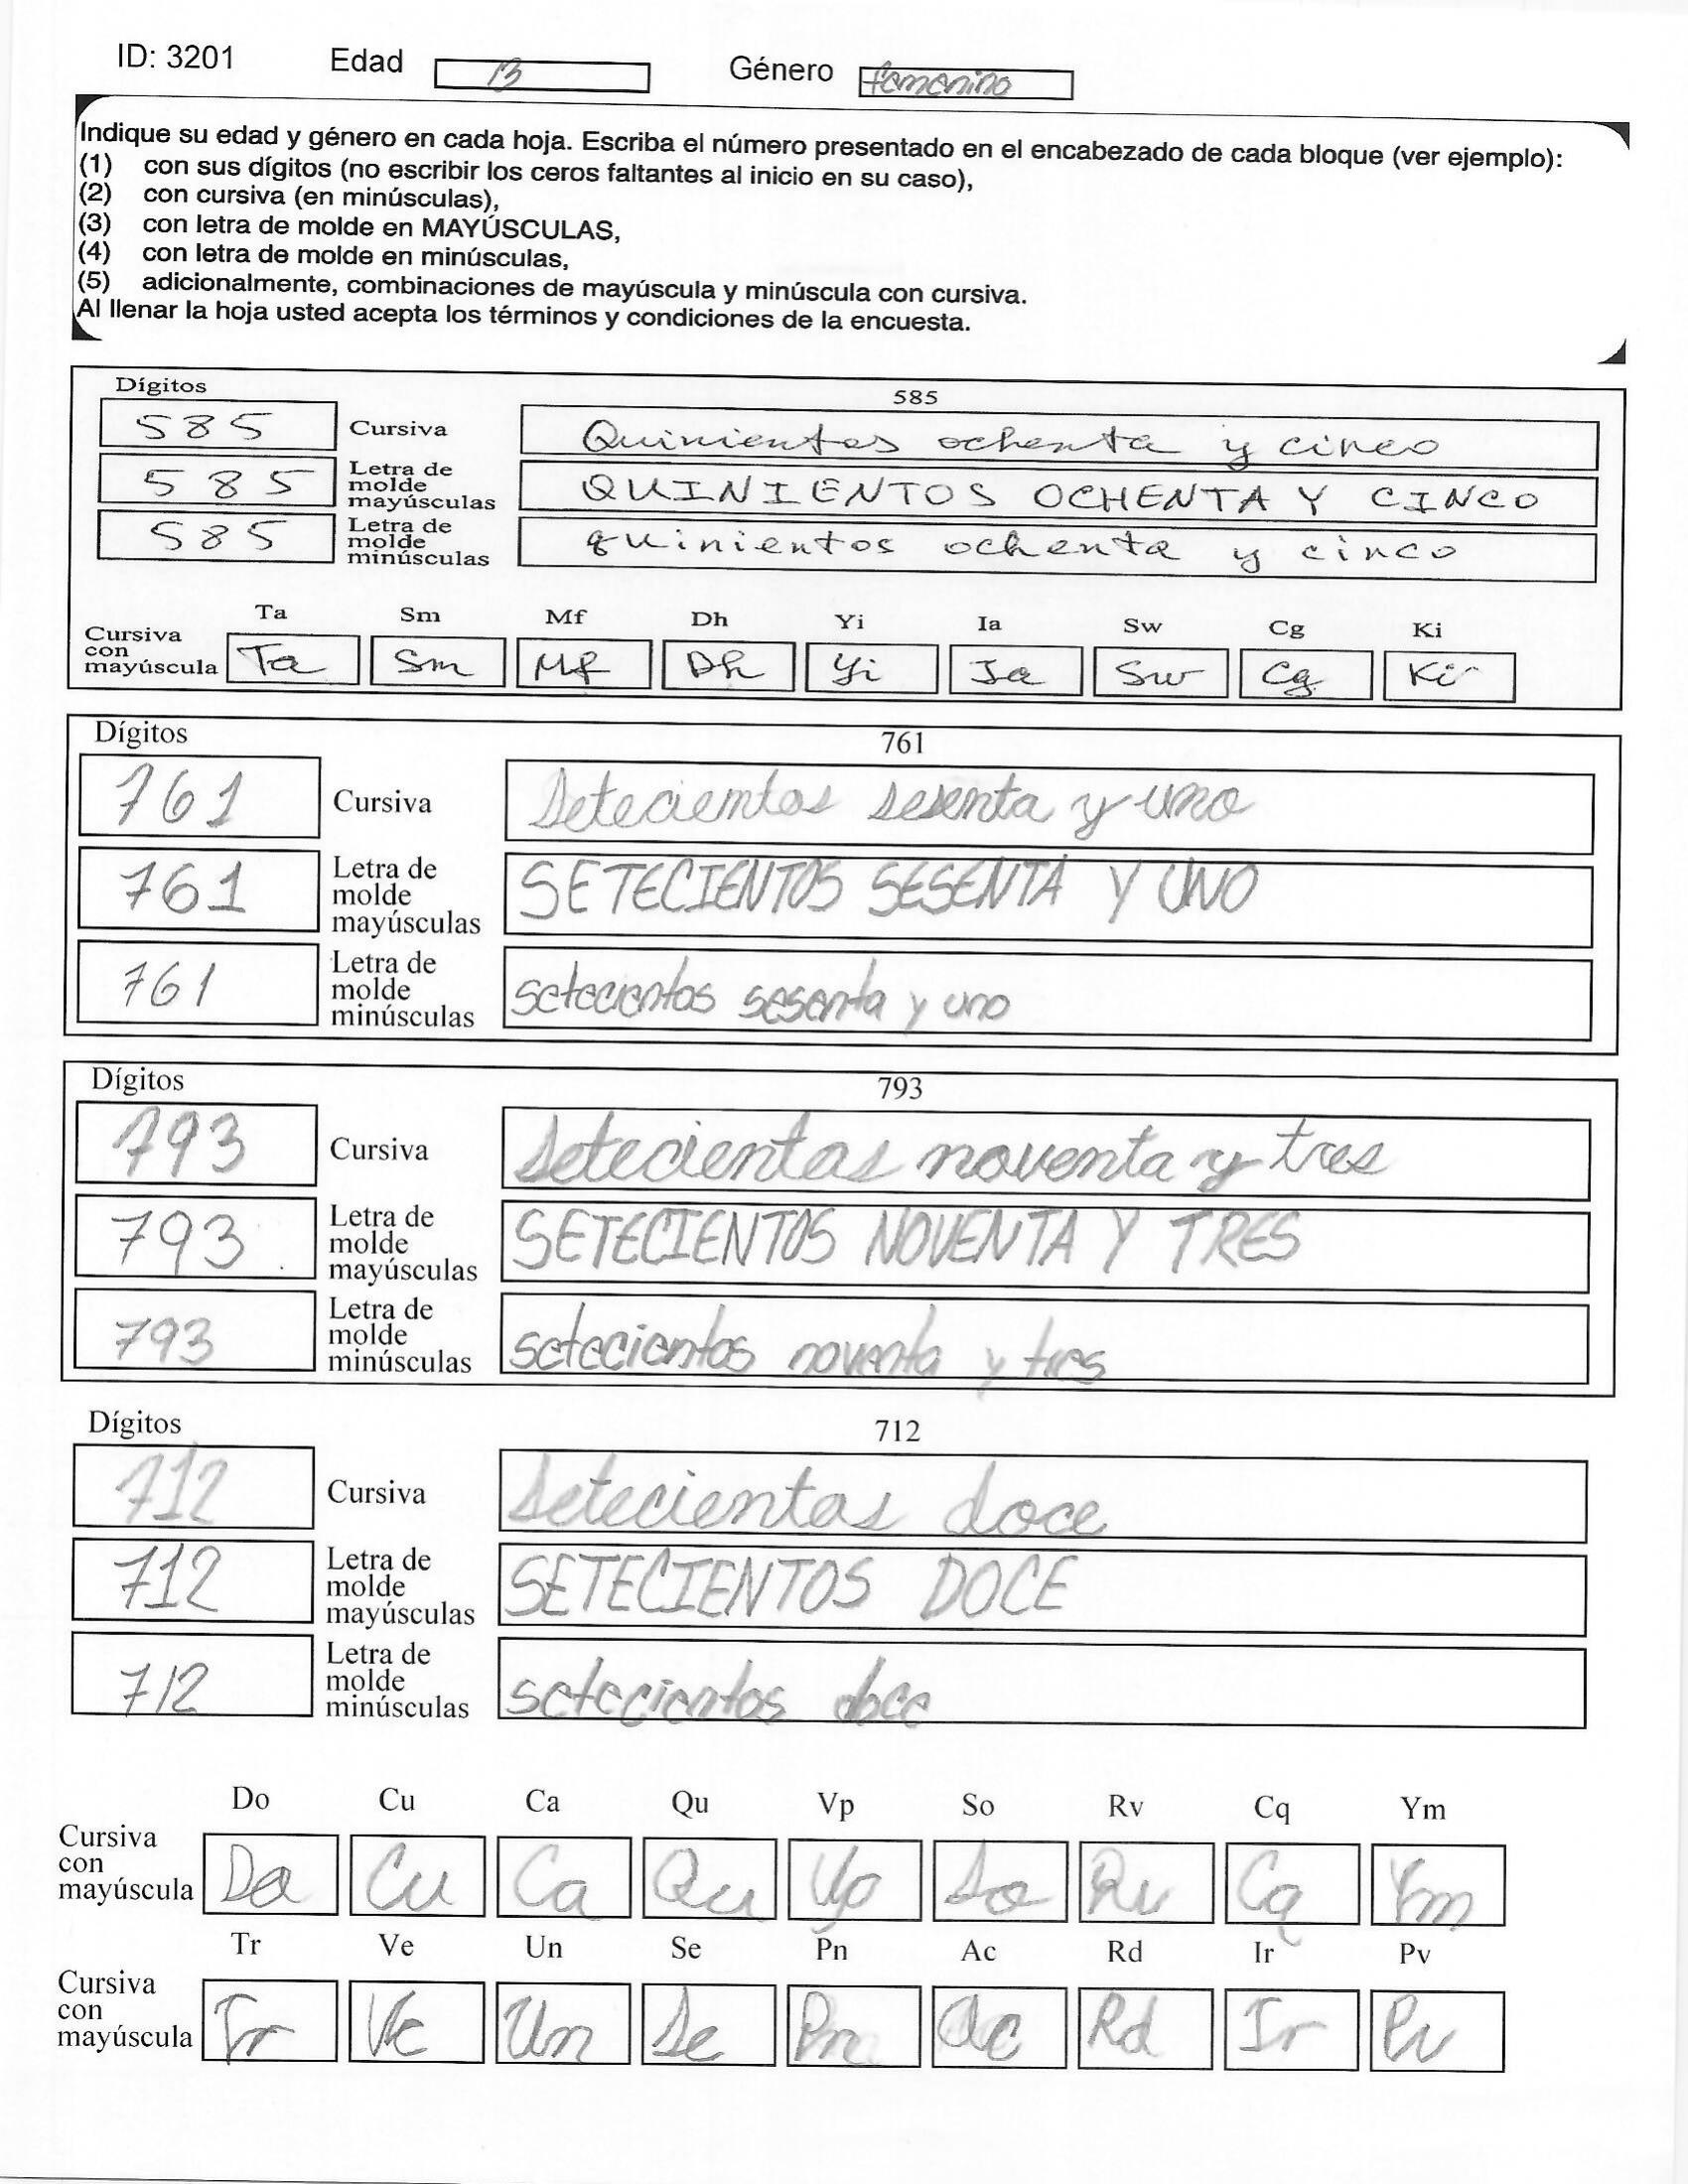 ID: 3201 Edad 13 Género femenino
Indique su edad y género en cada hoja. Escriba el número presentado en el encabezado de cada bloque (ver ejemplo):
(1) con sus dígitos (no escribir los ceros faltantes al inicio en su caso),
(2) con cursiva (en minúsculas),
(3) con letra de molde en MAYÚSCULAS,
(4) con letra de molde en minúsculas,
(5) adicionalmente, combinaciones de mayúscula y minúscula con cursiva.
Al llenar la hoja usted acepta los términos y condiciones de la encuesta.
Dígitos 585
585 Cursiva Quinientos ochenta y cinco
585 Letra de molde mayúsculas QUINIENTOS OCHENTA Y CINCO
585 Letra de molde minúsculas quinientos ochenta y cinco
Ta Sm Mf Dh Yi Ia Sw Cg Ki
Cursiva con mayúscula Ta Sm Mf Dh Yi Ia Sw Cg Ki
Dígitos 761
761 Cursiva Setecientos sesenta y uno
761 Letra de molde mayúsculas SETECIENTOS SESENTA Y UNO
761 Letra de molde minúsculas setecientos sesenta y uno
Dígitos 793
793 Cursiva Setecientos noventa y tres
793 Letra de molde mayúsculas SETECIENTOS NOVENTA Y TRES
793 Letra de molde minúsculas setecientos noventa y tres
Dígitos 712
712 Cursiva Setecientos doce
712 Letra de molde mayúsculas SETECIENTOS DOCE
712 Letra de molde minúsculas setecientos doce
Do Cu Ca Qu Vp So Rv Cq Ym
Cursiva con mayúscula Do Cu Ca Qu Vp So Rv Cq Ym
Tr Ve Un Se Pn Ac Rd Ir Pv
Cursiva con mayúscula Tr Ve Un Se Pn Ac Rd Ir Pv